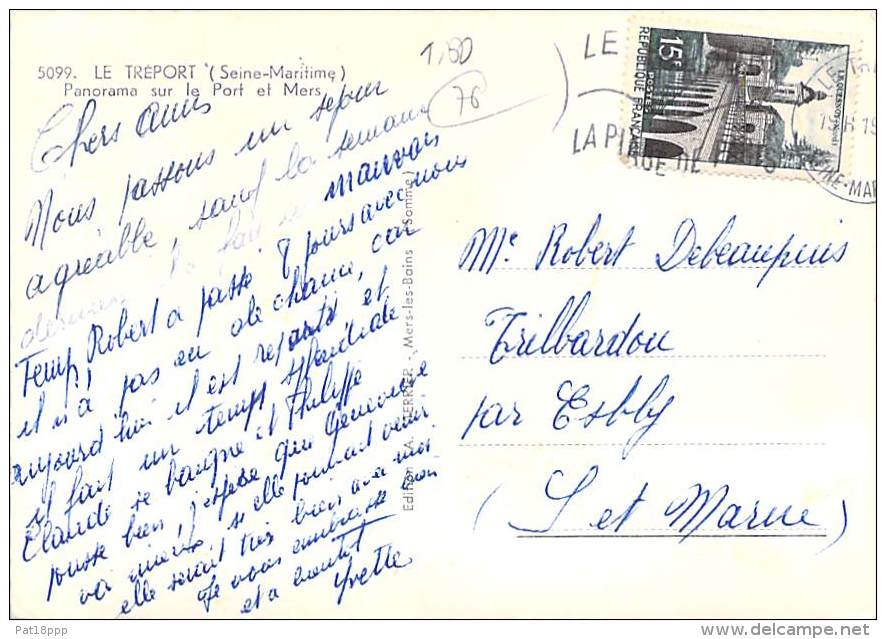 5099. LE TRÉPORT (Seine-Maritime)
Panorama sur le Port et Mers
1,80
76
Chers amis
Nous passons un séjour
agréable, sauf la semaine
dernière il a fait un mauvais
Temps, Robert a passé 8 jours avec nous
il n'a pas eu de chance, car
aujourd'hui il est reparti et
il fait un temps splendide
Claude se baigne et Philippe
pousse bien, j'espère que Geneviève
va mieux, si elle pouvait venir
elle serait très bien avec moi
Je vous embrasse bien
et a bientôt
Yvette
Edition A. FERRIER, Mers-les-Bains (Somme)
LE
LA PL
15F
POSTES
RÉPUBLIQUE FRANÇAISE
LE QUESNOY (NORD)
INE-MAR
Mr Robert Debeaupuis
Trilbardou
par Esbly
(S et Marne)
Pat18ppp
© www.delcampe.net